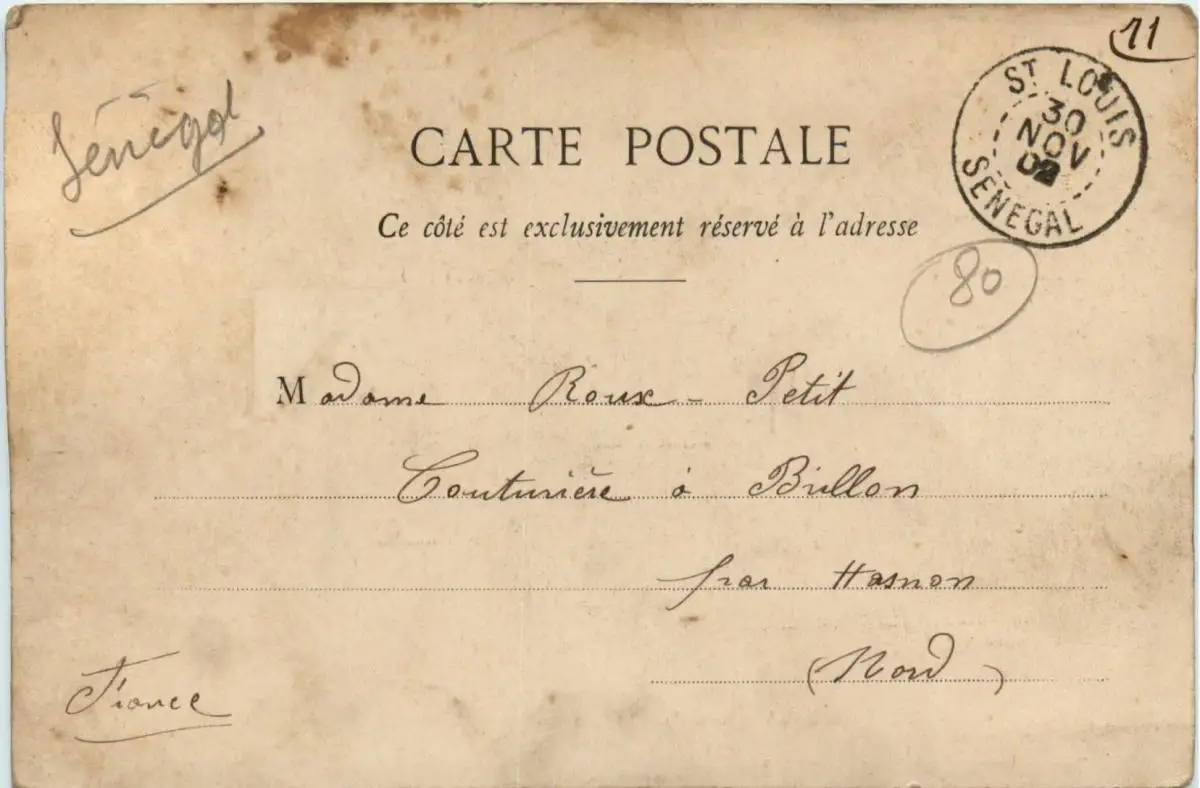 11
Sénégal
ST LOUIS
30
NOV
02
SENEGAL
CARTE POSTALE
Ce côté est exclusivement réservé à l'adresse
80
Madame Roux - Petit
Couturière à Brillon
par Hasnon
(Nord)
France